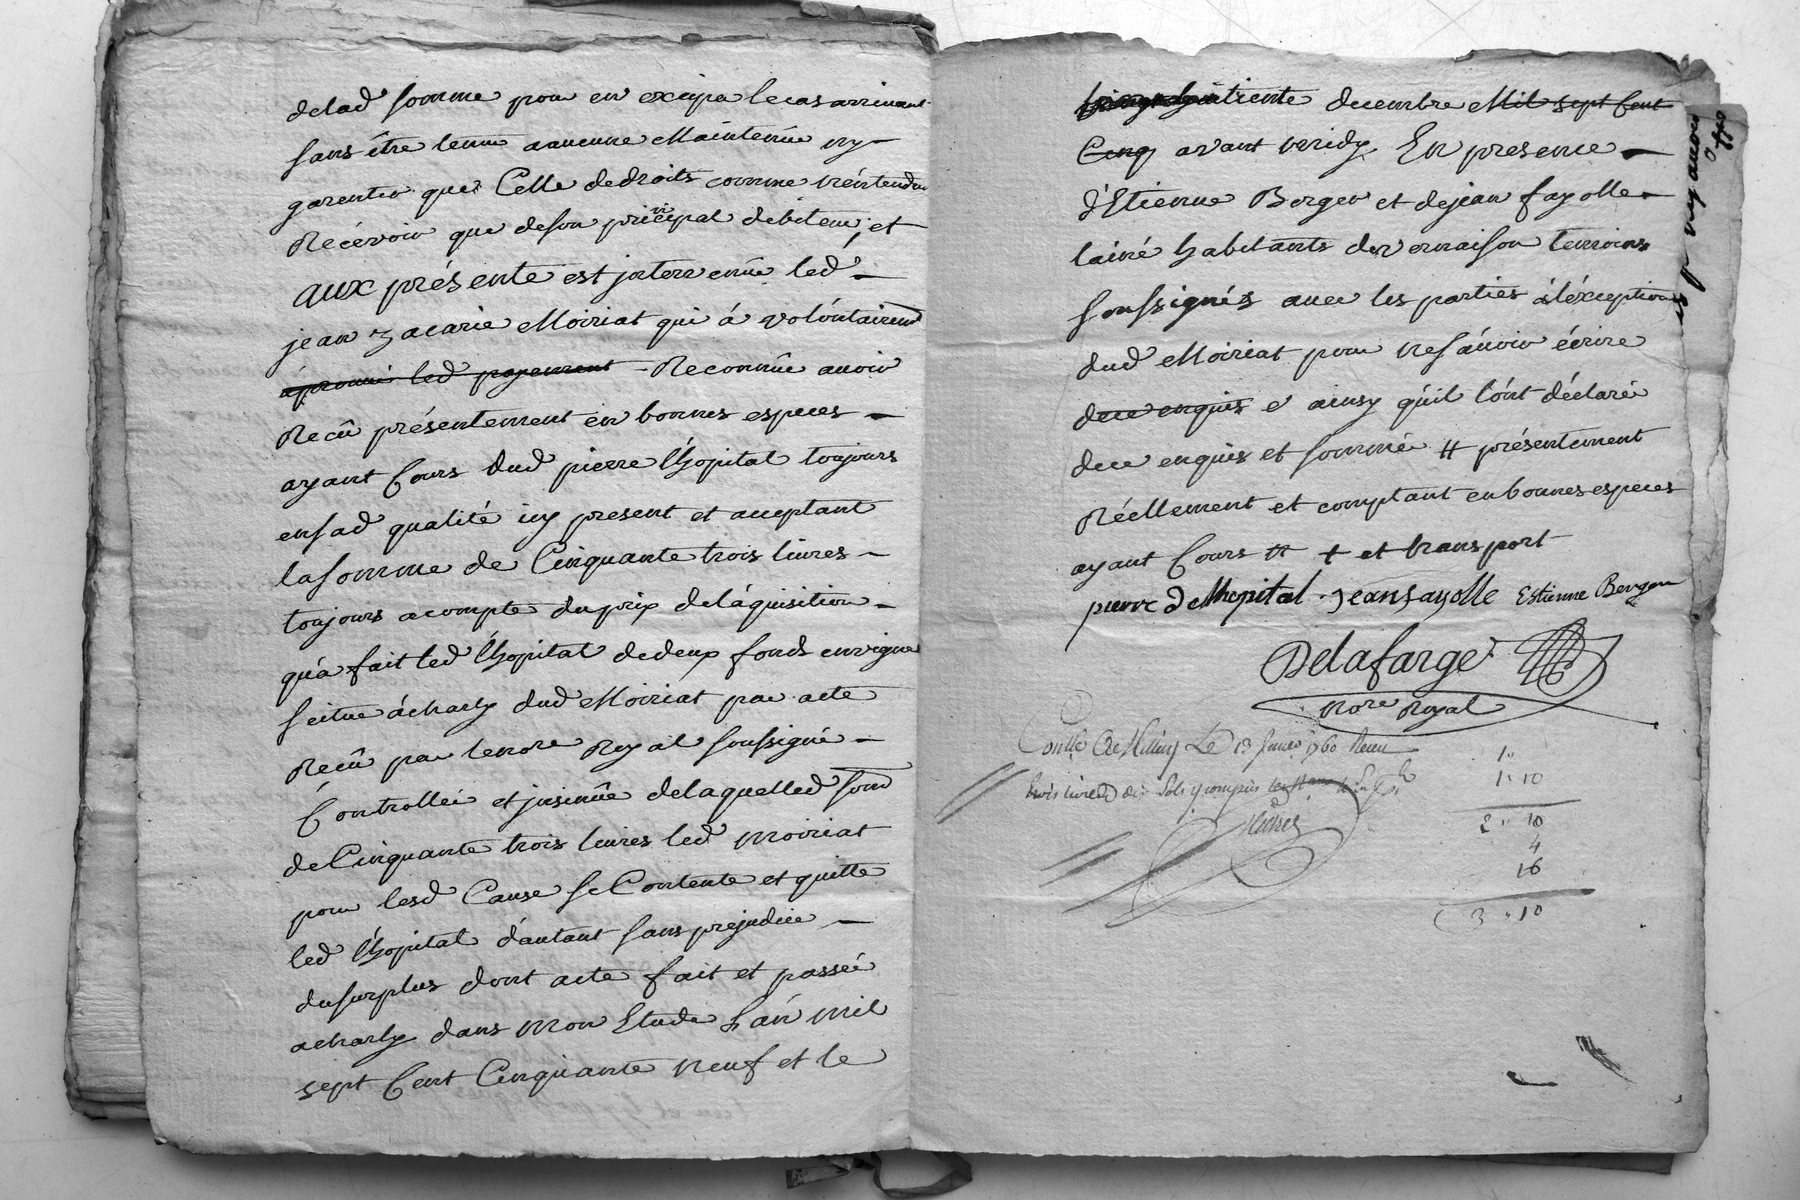 delad somme pour en exciper le cas arrivant
sans être tenue a aucune Maintenüe ny
garentie que Celle de droits comme n'éntendant
Recévoir que de son principal débiteur, et
aux présente est jntervenüe led
jean zacarie Moiriat qui á volóntairemt
led payement Reconnüe avoir
Recû présentement en bonnes especes
ayant Cours dud pierre l'hopital toujours
en sad qualité icy present et acceptant
la somme de Cinquante trois livres
toujours a compte du prix de l'áquisition
qu'a fait led l'hopital de deux fonds en vigne
scitue á charly dud Moiriat par acte
Recû par le nore Royal soussigné
Controllée et jnsinüe de laquelled som
de Cinquante trois livres led moiriat
pour lesd Cause se Contente et quitte
led l'hopital d'autant sans prejudice
du surplus dont acte fait et passée
a charly dans mon Etude L'án mil
sept Cent Cinquante neuf et le
trente decembre Mil sept Cent
Cinq avant midy En presence
d'Etienne Berger et de jean fayolle
lainé habitants de vernaison temoins
soussignés avec les parties á l'éxception
dud Moiriat pour ne sáuoir écrire
de ce enquis é ainsy qu'il lónt déclaré
de ce enquis et sommé # présentement
Réellement et comptant en bonnes especes
ayant Cours # + et transport
pierre de lhopital jean fayolle Estienne Berger
Delafarge
Nore Royal
Contlé a Millery Le 13 Janer 1760 Recu
trois livres dix sols y compris les
1"
1" 10
2 " 10
4
16
3 " 10